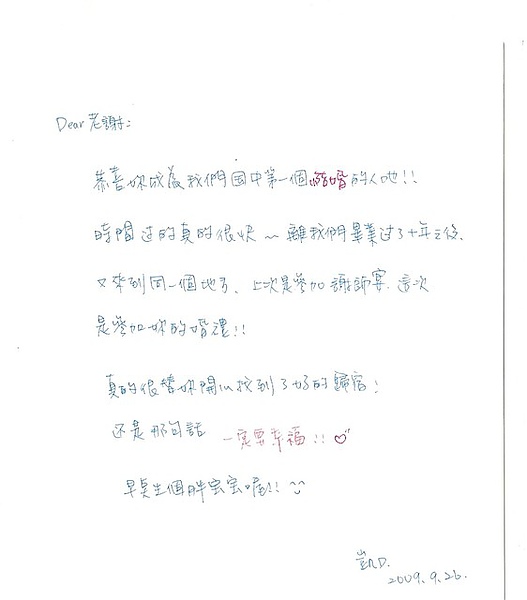 Dear 老謝:
恭喜妳成為我們國中第一個結婚的人吔!!
時間过的真的很快~離我們畢業过了十年之後、
又來到同一個地方、上次是參加謝師宴、這次
是參加妳的婚禮!!
真的很替妳開心找到了好的歸宿!
还是那句話 一定要幸福!!♡
早點生個胖宝宝喔!!
凱D.
2009.9.26.